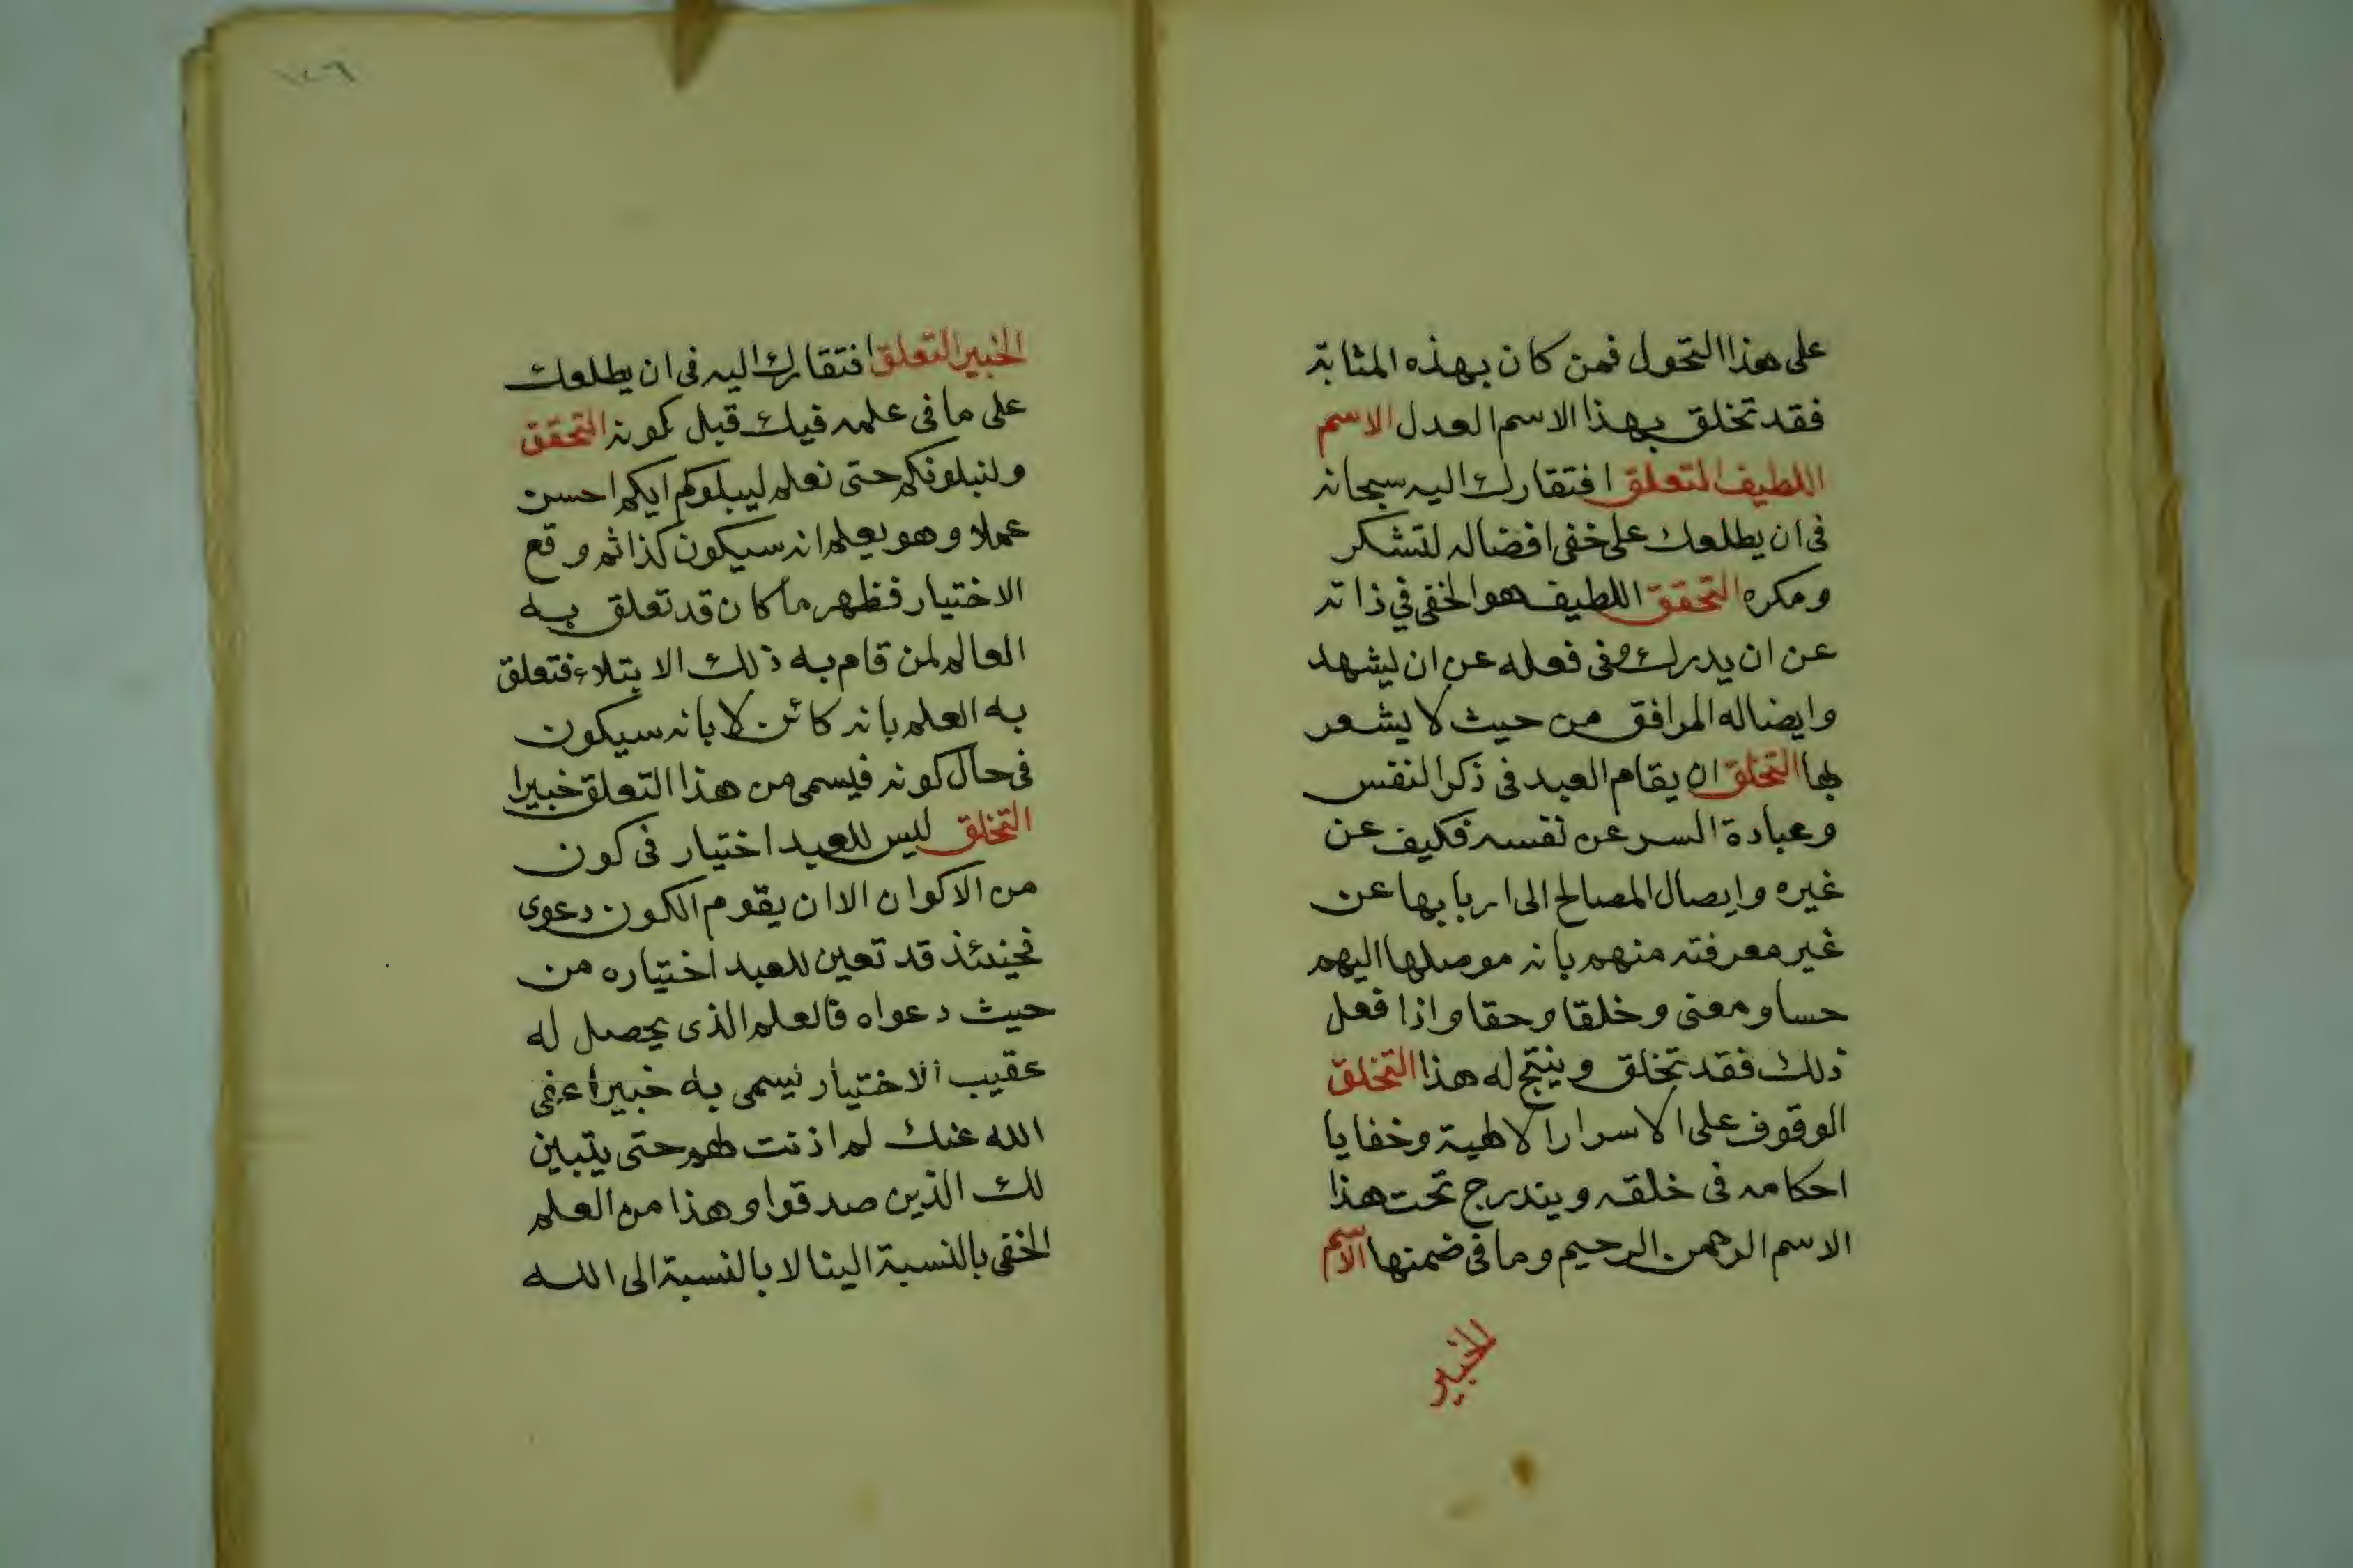 على هذا التحول فمن كان بهذه المثابة
فقد تخلق بهذا الاسم العدل الاسم
اللطيف التعلق افتقارك اليه سبحانه
فى ان يطلعك على خفى افضاله لتشكر
ومكره التحقق اللطيف هو الخفى في ذاته
عن ان يدرك وفى فعله عن ان يشهد
وايضاله المرافق من حيث لا يشعر
بها التخلق ان يقام العبد فى ذكر النفس
وعبادة السر عن نفسه فكيف عن
غيره وايصال المصالح الى اربابها عن
غير معرفته منهم بانه موصلها اليهم
حسا ومعنى وخلقا وحقا واذا فعل
ذلك فقد تخلق وينتج له هذا التخلق
الوقوف على الاسرار الالهية وخفايا
احكامه فى خلقه ويندرج تحت هذا
الاسم الرحمن الرحيم وما فى ضمنها الاسم
الخبير
١٤٦
الخبير التعلق افتقارك اليه فى ان يطلعك
على ما فى علمه فيك قبل كونه التحقق
ولنبلونكم حتى نعلم ليبلوكم ايكم احسن
عملا وهو يعلم انه سيكون كذا ثم وقع
الاختيار فظهر ما كان قد تعلق به
العالم لمن قام به ذلك الابتلاء فتعلق
به العلم بانه كائن لا بانه سيكون
فى حال كونه فيسمى من هذا التعلق خبيرا
التخلق ليس للعبد اختيار فى كون
من الاكوان الا ان يقوم الكون دعوى
فحينئذ قد تعين للعبد اختياره من
حيث دعواه فالعلم الذى يحصل له
عقيب الاختيار يسمى به خبيرا عفى
الله عنك لم اذنت لهم حتى يتبين
لك الذين صدقوا وهذا من العلم
الخفى بالنسبة الينا لا بالنسبة الى الله